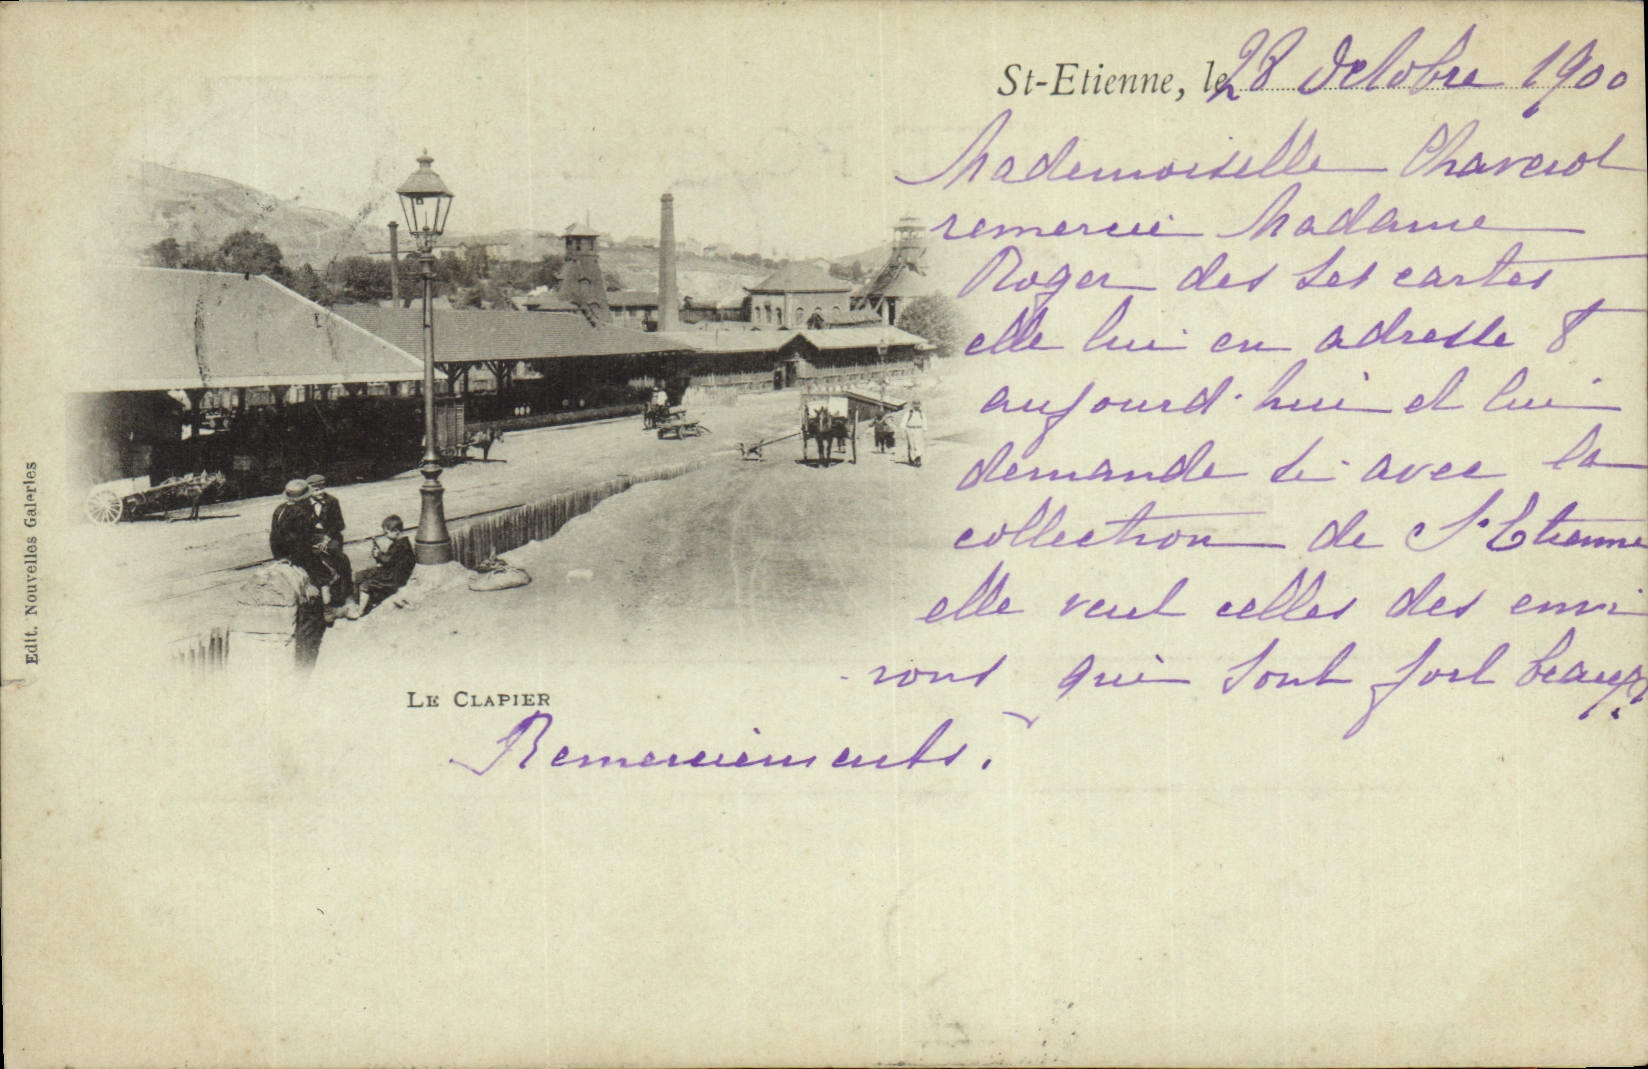 St-Etienne, le 28 Octobre 1900
Mademoiselle
remercie Madame
Roger des ses cartes
elle lui en adresse 8
aujourd'hui et lui
demande si avec la
collection de St Etienne
elle veut celles des envi
rons qui sont fort beaux.
Remerciements.
LE CLAPIER
Edit. Nouvelles Galeries